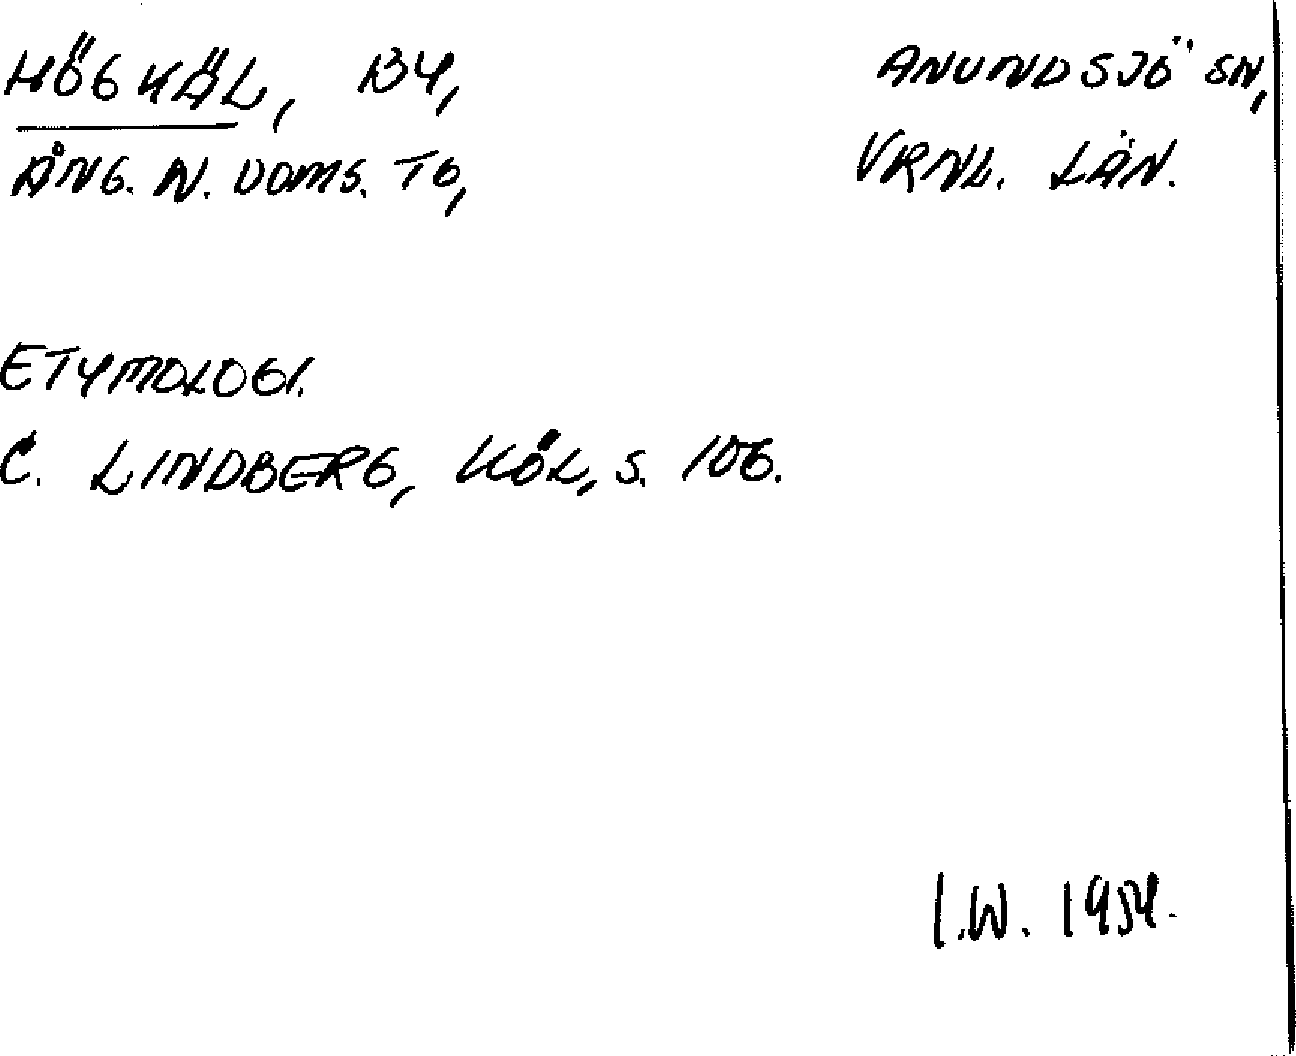 HÖGKÄL, BY, ANUNDSJÖ SN,
ÅNG. N. DOMS. TG, VRNL. LÄN.
ETYMOLOGI.
C. LINDBERG, KÖL, S. 106.
I.W. 1954.